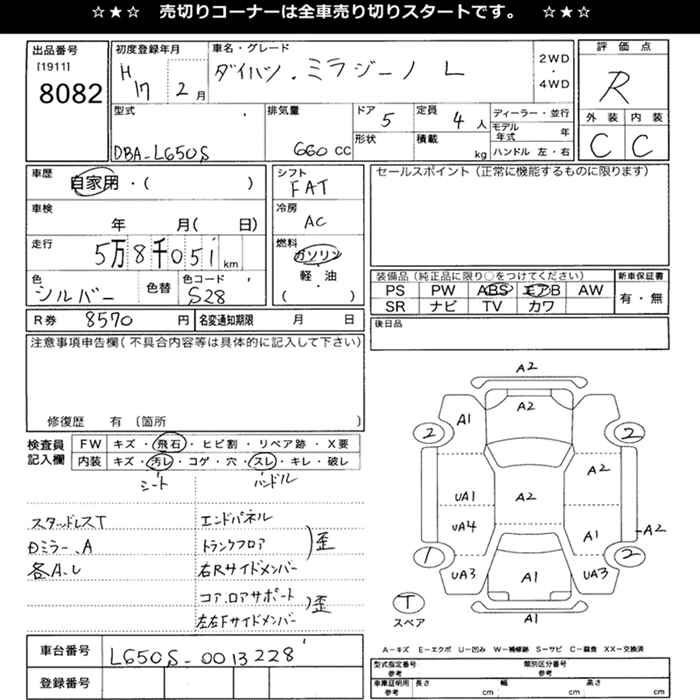 ☆★☆ 売切りコーナーは全車売り切りスタートです。 ☆★☆
出品番号
[1911]
8082
初度登録年月
H17 2月
車名・グレード
ダイハツ・ミラジーノ L
2WD
・
4WD
評価点
R
外装 内装
C C
型式
DBA-L650S
排気量
660 CC
ドア
5
定員
4人
形状
積載
kg
ディーラー・並行
モデル年式 年
ハンドル 左・右
車歴
自家用・( )
車検
年 月( 日)
走行
5万8千051km
色
シルバー
色替
色コード
S28
シフト
FAT
冷房
AC
燃料
ガソリン
軽・油
( )
セールスポイント(正常に機能するものに限ります)
装備品(純正品に限り○をつけてください)
PS PW ABS エアB AW
SR ナビ TV カワ
新車保証書
有・無
R券 8570円
名変通知期限 月 日
後日品
注意事項申告欄(不具合内容等は具体的に記入して下さい)
修復歴 有(箇所
検査員記入欄
FW キズ・飛石・ヒビ割・リペア跡・X要
内装 キズ・汚レ・コゲ・穴・スレ・キレ・破レ
シート ハンドル
スタッドレスT
Dミラー、A
各A.U
エンドパネル
トランクフロア
右Rサイドメンバー
)歪
コア.ロアサポート
左右Fサイドメンバー
)歪
A2
A1 A2
2 2
A2
UA1 A2
UA4 A1 -A2
1 2
UA3 A1 UA3
T
スペア
A1
A－キズ E－エクボ U－凹み W－補修跡 S－サビ C－腐食 XX－交換済
車台番号
L650S-0013228
登録番号
型式指定番号
参考
類別区分番号
車庫証明用
参考
長さ cm 幅 cm 高さ cm